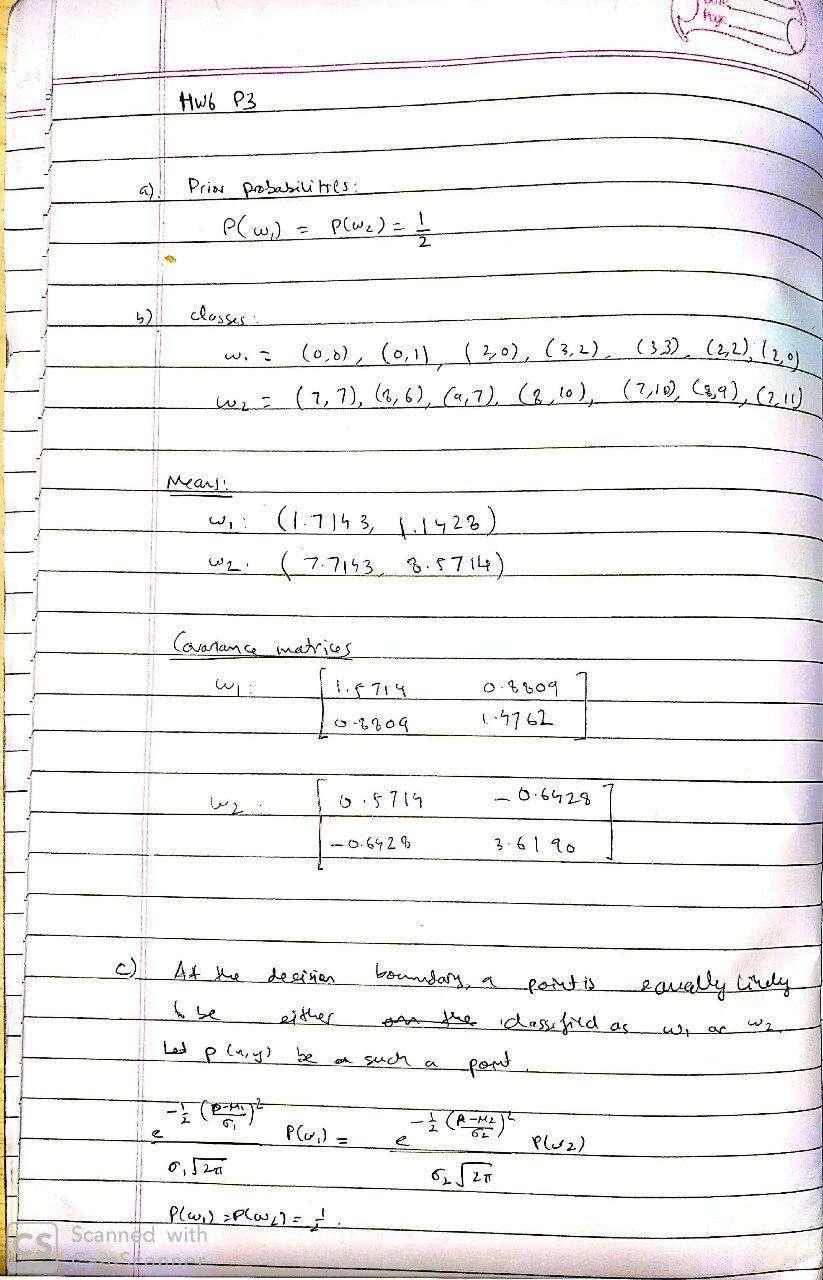 Page
HW6 P3
a). Prior probabilities:
P(ω₁) = P(ω₂) = 1/2
b) classes:
ω₁ = (0,0), (0,1), (2,0), (3,2), (3,3), (2,2), (2,0)
ω₂ = (7,7), (8,6), (9,7), (8,10), (7,10), (8,9), (7,11)
Means:
ω₁: (1.7143, 1.1428)
ω₂: (7.7143, 8.5714)
Covariance matrices
ω₁: [ 1.5714 0.8809
0.8809 1.4762 ]
ω₂: [ 0.5714 -0.6428
-0.6428 3.6190 ]
c) At the decision boundary, a point is equally likely
to be either on the classified as ω₁ or ω₂
Let p(x,y) be a such a point.
e^(-1/2 ((p-μ₁)/σ₁)²) / (σ₁√2π) P(ω₁) = e^(-1/2 ((p-μ₂)/σ₂)²) / (σ₂√2π) P(ω₂)
P(ω₁) = P(ω₂) = 1/2.
CS Scanned with
CamScanner